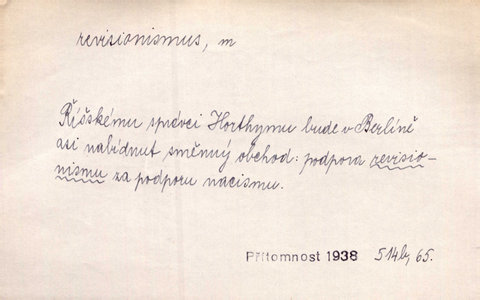 revisionismus, m
Říšskému správci Horthymu bude v Berlíně
asi nabídnut směnný obchod: podpora revisio-
nismu za podporu nacismu.
Přítomnost 1938 514b, 65.